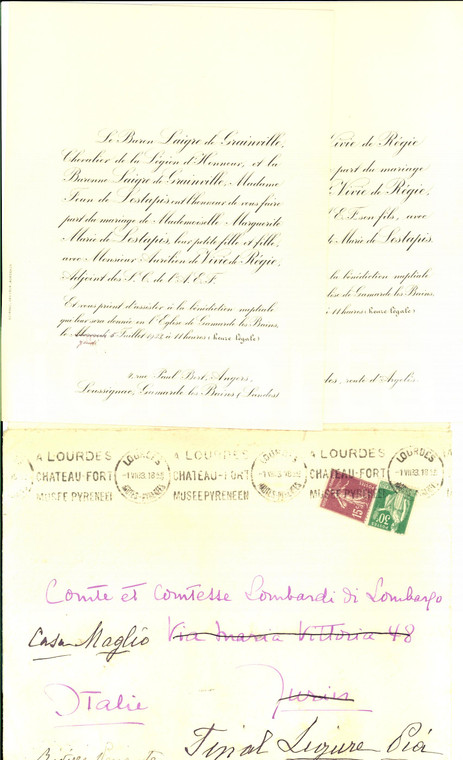 Le Baron Laigre de Grainville,
Chevalier de la Légion d'Honneur, et la
Baronne Laigre de Grainville, Madame
Jean de Lestapis ont l'honneur de vous faire
part du mariage de Mademoiselle Marguerite
Marie de Lestapis, leur petite fille et fille,
avec Monsieur Aurélien de Vivie de Régie,
Adjoint des S. C. de l'A. E. F.
Et vous prient d'assister à la bénédiction nuptiale
qui leur sera donnée en l'Église de Gamarde les Bains,
le Juillet à 11 heures (heure légale)
4, rue Paul Bert, Angers,
Loussignac, Gamarde les Bains (Landes)
Vivie de Régie
part du mariage
Vivie de Régie,
E. F. son fils, avec
Marie de Lestapis.
la bénédiction nuptiale
lise de Gamarde les Bains,
à 11 heures (heure légale)
des, route d'Argelès
A LOURDES
CHATEAU-FORT
MUSEE PYRENEEN
LOURDES
A LOURDES
CHATEAU-FORT
MUSEE PYRENEEN
LOURDES
A LOURDES
CHATEAU-FORT
MUSEE PYRENEEN
LOURDES
15c
30c
Comte et Comtesse Lombardi di Lombargo
Casa Maglio Via Maria Vittoria 48
Italie Turin
Final Ligure Pià